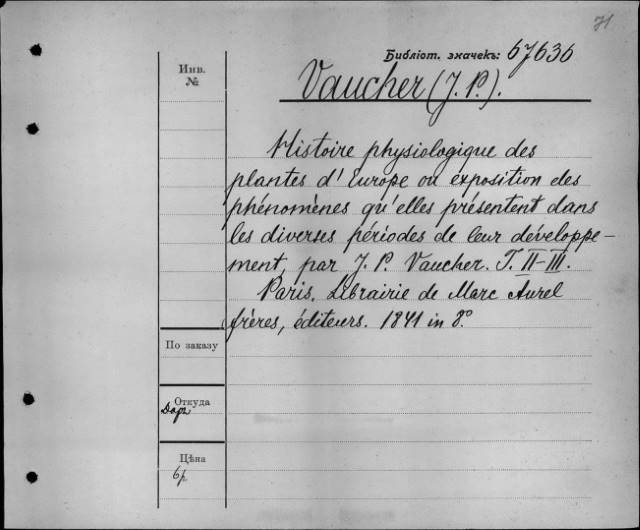 71
Библіот. значекъ: 67636
Инв.
№
Vaucher (J. P.).
Histoire physiologique des
plantes d'Europe ou exposition des
phénomènes qu'elles présentent dans
les diverses périodes de leur développe-
ment, par J. P. Vaucher. T. II-III.
Paris. Librairie de Marc Aurel
frères, éditeurs. 1841 in 8º
По заказу
Откуда
Цѣна
6р